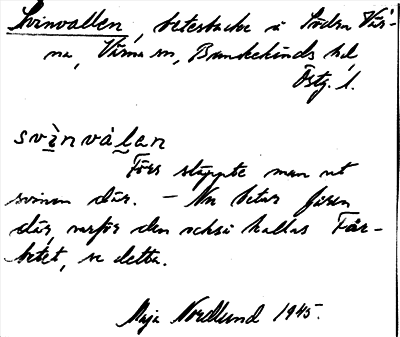 Svinvallen, betesbacke i Södra Vär-
na, Värna sn, Bankekinds hd,
Östg. l.
svìnválan
Förr släppte man ut
svinen där. – Nu betar fåren
där, varför den också kallas Får-
betet, se detta.
Maja Nordlund 1945.